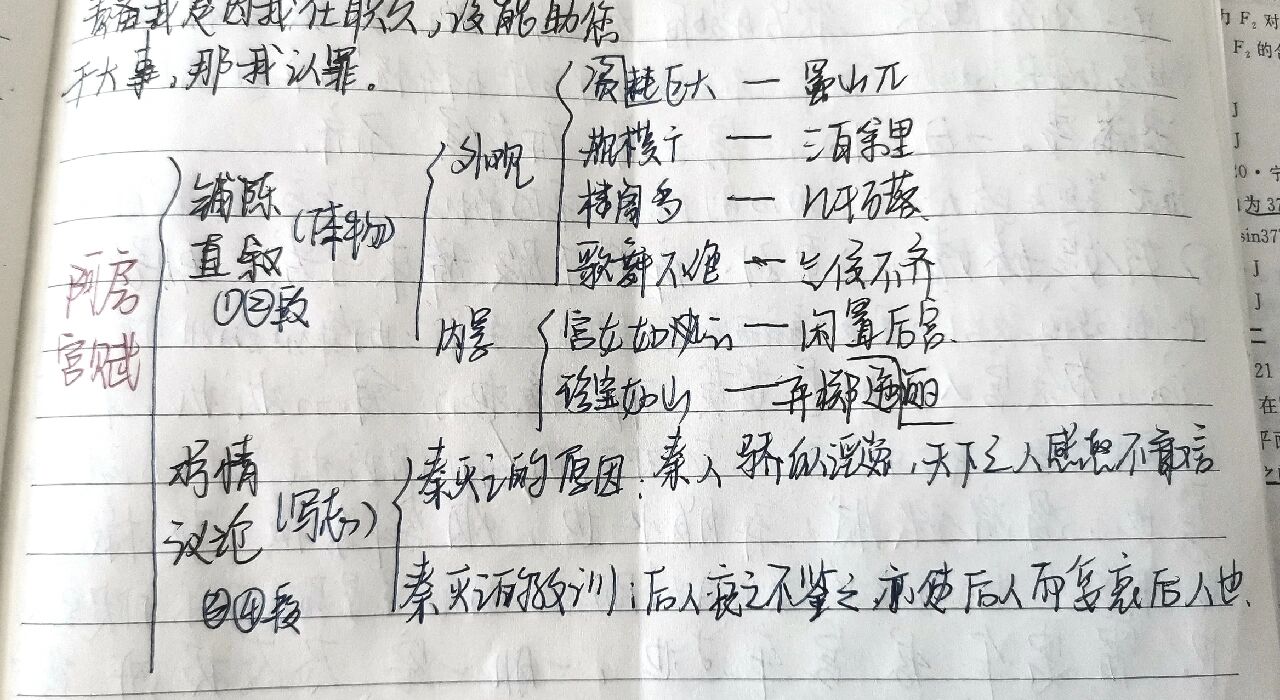 我是因我任职久,没能助您
干大事,那我认罪。
阿房
宫赋
铺陈
直叙
(体物)
①②段
外观
资耗巨大 — 蜀山兀
规模广 — 三百余里
楼阁多 — 几千万落
歌舞不绝 — 气候不齐
内景
宫女如 — 闲置后宫.
珍宝如山 — 弃掷逦迤
抒情
议论
(写志)
③④段
秦灭亡的原因:秦人骄,天下之人敢怒不敢言
秦灭亡的教训:后人哀之不鉴之,亦使后人而复哀后人也.
力 F₂ 对
F₂ 的
J
J
20·宁
为 37
sin37
J
J
二
21
在
平面
之